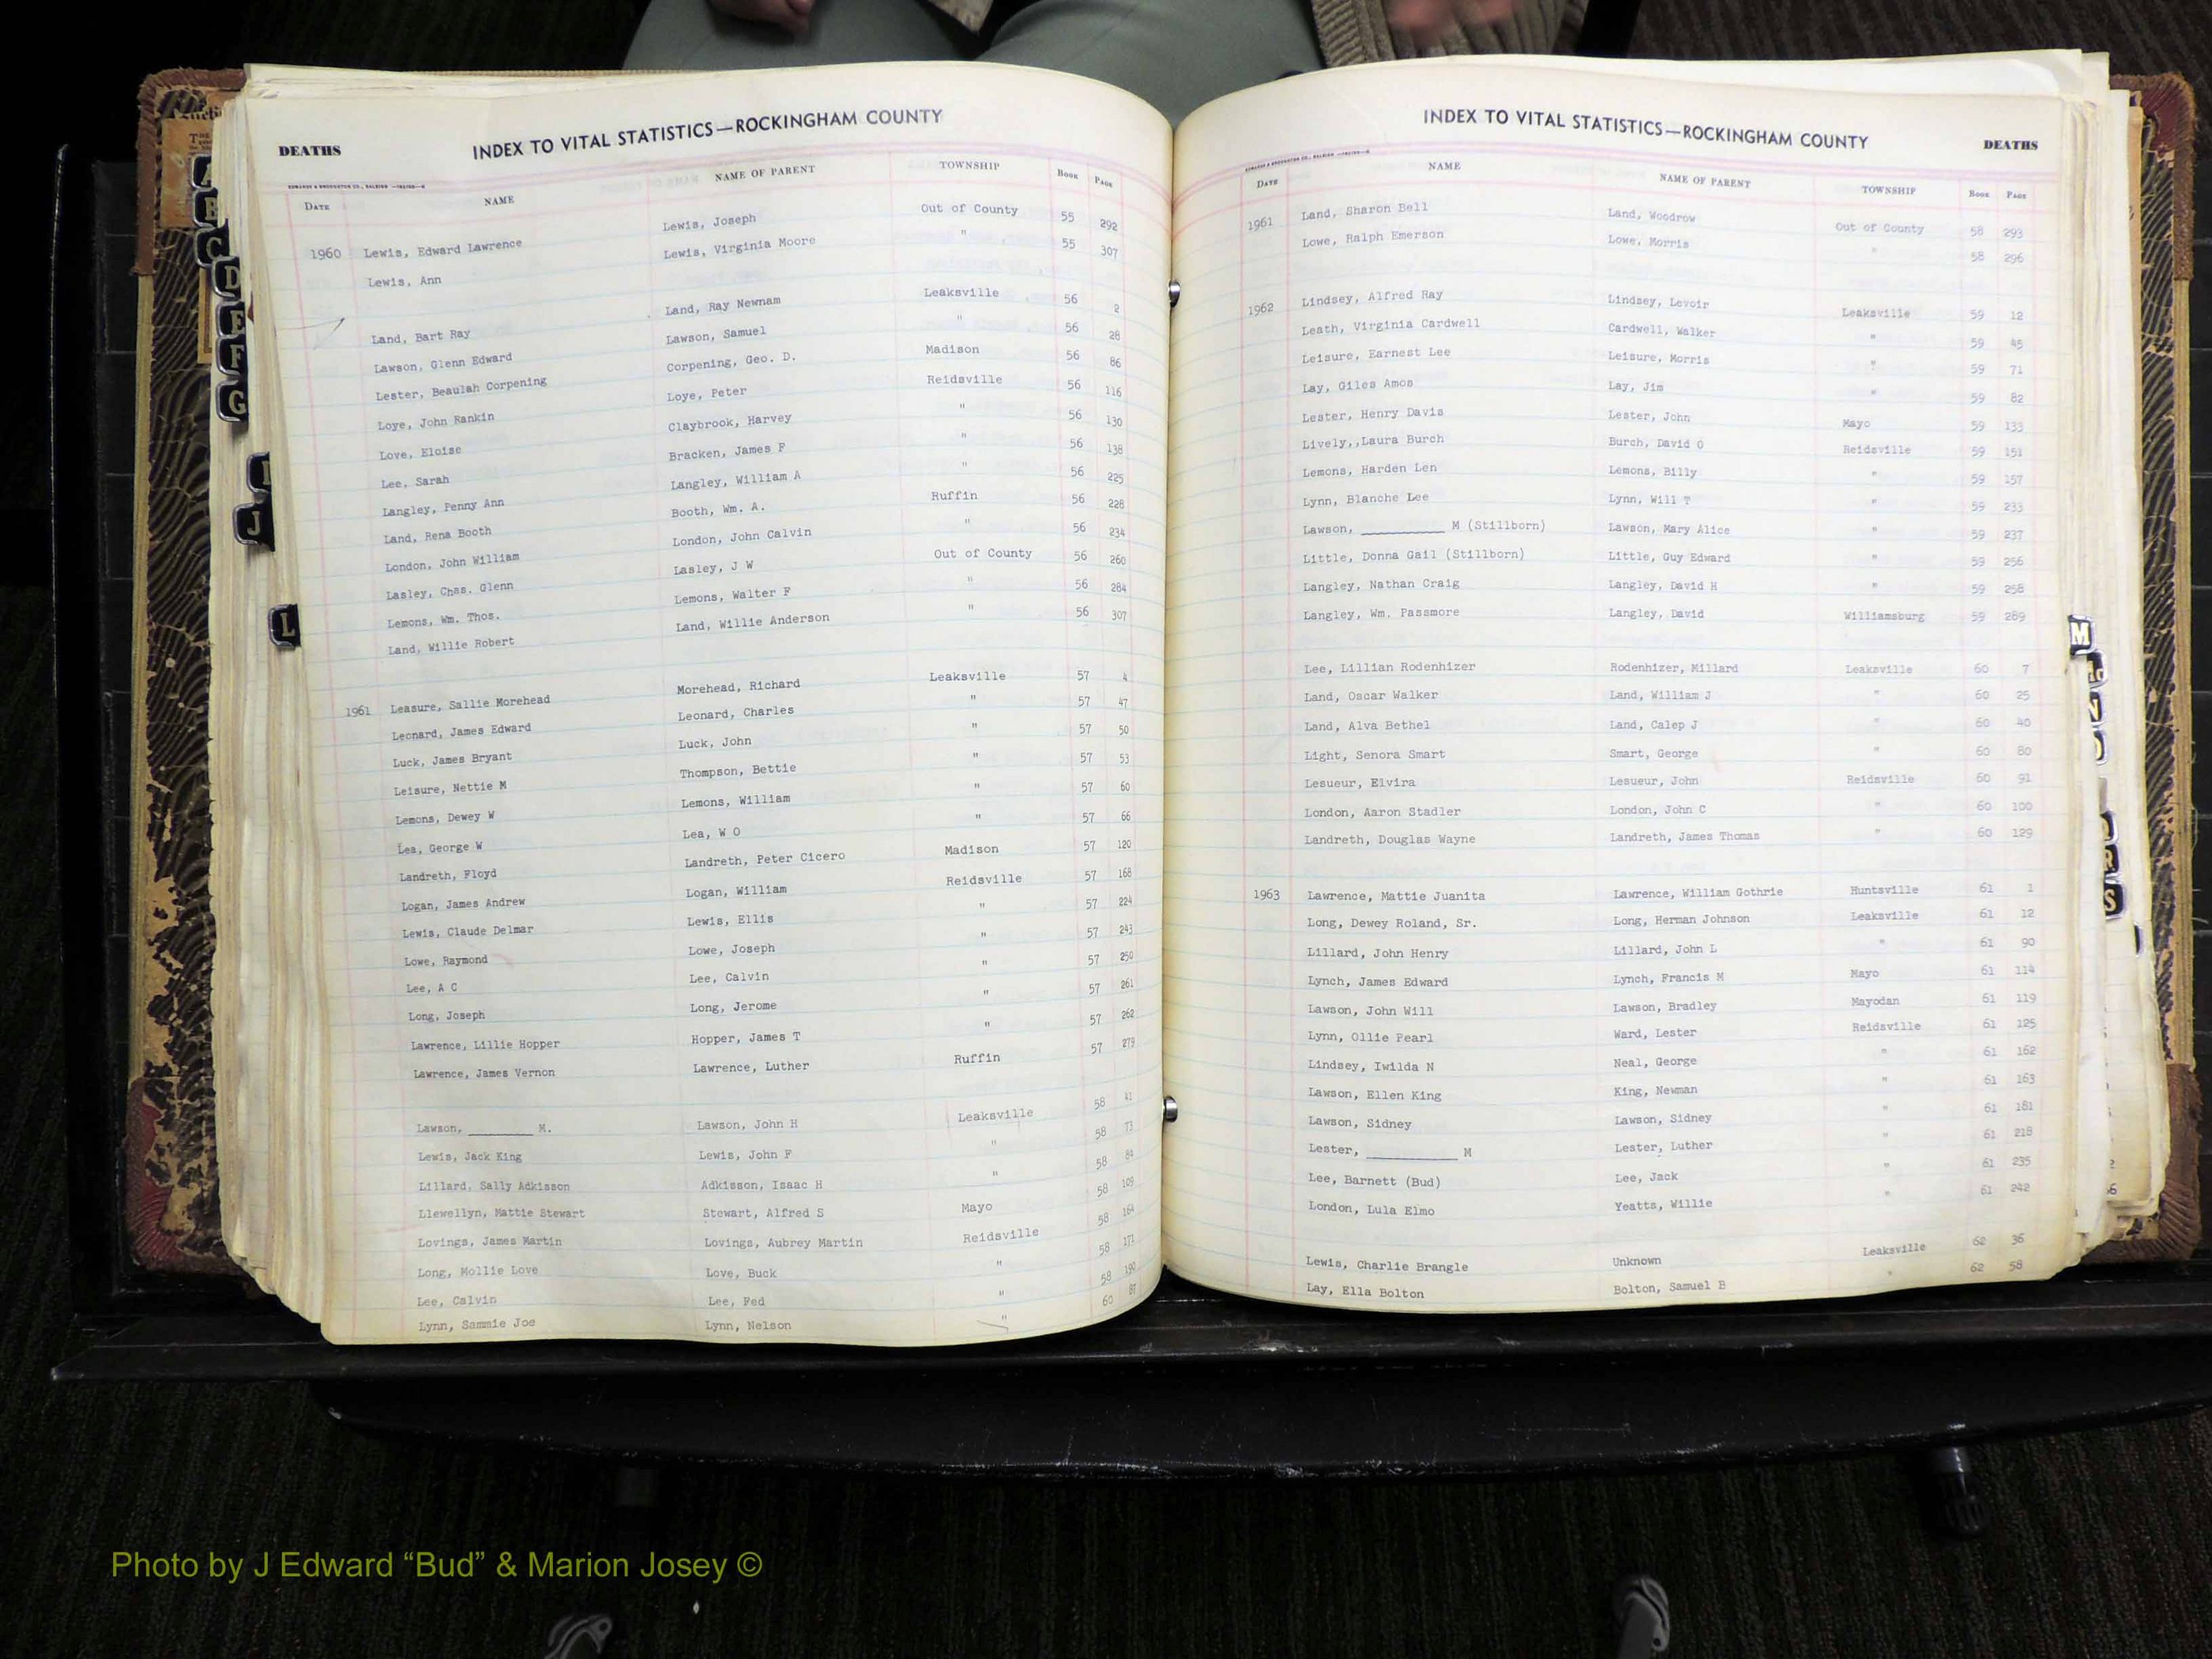 INDEX TO VITAL STATISTICS—ROCKINGHAM COUNTY
DEATHS
DATE NAME NAME OF PARENT TOWNSHIP BOOK PAGE
1960 Lewis, Edward Lawrence Lewis, Joseph Out of County 55 292
Lewis, Ann Lewis, Virginia Moore " 55 307
Land, Bart Ray Land, Ray Newnam Leaksville 56 2
Lawson, Glenn Edward Lawson, Samuel " 56 28
Lester, Beaulah Corpening Corpening, Geo. D. Madison 56 86
Loye, John Rankin Loye, Peter Reidsville 56 116
Love, Eloise Claybrook, Harvey " 56 130
Lee, Sarah Bracken, James F " 56 138
Langley, Penny Ann Langley, William A " 56 225
Land, Rena Booth Booth, Wm. A. Ruffin 56 228
London, John William London, John Calvin " 56 234
Lasley, Chas. Glenn Lasley, J W Out of County 56 260
Lemons, Wm. Thos. Lemons, Walter F " 56 284
Land, Willie Robert Land, Willie Anderson " 56 307
1961 Leasure, Sallie Morehead Morehead, Richard Leaksville 57 4
Leonard, James Edward Leonard, Charles " 57 47
Luck, James Bryant Luck, John " 57 50
Leisure, Nettie M Thompson, Bettie " 57 53
Lemons, Dewey W Lemons, William " 57 60
Lea, George W Lea, W O " 57 66
Landreth, Floyd Landreth, Peter Cicero Madison 57 120
Logan, James Andrew Logan, William Reidsville 57 168
Lewis, Claude Delmar Lewis, Ellis " 57 224
Lowe, Raymond Lowe, Joseph " 57 243
Lee, A C Lee, Calvin " 57 250
Long, Joseph Long, Jerome " 57 261
Lawrence, Lillie Hopper Hopper, James T " 57 262
Lawrence, James Vernon Lawrence, Luther Ruffin 57 279
Lawson, ________ M. Lawson, John H Leaksville 58 41
Lewis, Jack King Lewis, John F " 58 73
Lillard, Sally Adkisson Adkisson, Isaac H " 58 84
Llewellyn, Mattie Stewart Stewart, Alfred S Mayo 58 109
Lovings, James Martin Lovings, Aubrey Martin Reidsville 58 164
Long, Mollie Love Love, Buck " 58 171
Lee, Calvin Lee, Fed " 58 190
Lynn, Sammie Joe Lynn, Nelson " 60 87
INDEX TO VITAL STATISTICS—ROCKINGHAM COUNTY
DEATHS
DATE NAME NAME OF PARENT TOWNSHIP BOOK PAGE
1961 Land, Sharon Bell Land, Woodrow Out of County 58 293
Lowe, Ralph Emerson Lowe, Morris " 58 296
1962 Lindsey, Alfred Ray Lindsey, Levoir Leaksville 59 12
Leath, Virginia Cardwell Cardwell, Walker " 59 45
Leisure, Earnest Lee Leisure, Morris " 59 71
Lay, Giles Amos Lay, Jim " 59 82
Lester, Henry Davis Lester, John Mayo 59 133
Lively,,Laura Burch Burch, David O Reidsville 59 151
Lemons, Harden Len Lemons, Billy " 59 157
Lynn, Blanche Lee Lynn, Will T " 59 233
Lawson, ________ M (Stillborn) Lawson, Mary Alice " 59 237
Little, Donna Gail (Stillborn) Little, Guy Edward " 59 256
Langley, Nathan Craig Langley, David H " 59 258
Langley, Wm. Passmore Langley, David Williamsburg 59 289
Lee, Lillian Rodenhizer Rodenhizer, Millard Leaksville 60 7
Land, Oscar Walker Land, William J " 60 25
Land, Alva Bethel Land, Calep J " 60 40
Light, Senora Smart Smart, George " 60 80
Lesueur, Elvira Lesueur, John Reidsville 60 91
London, Aaron Stadler London, John C " 60 100
Landreth, Douglas Wayne Landreth, James Thomas " 60 129
1963 Lawrence, Mattie Juanita Lawrence, William Gothrie Huntsville 61 1
Long, Dewey Roland, Sr. Long, Herman Johnson Leaksville 61 12
Lillard, John Henry Lillard, John L " 61 90
Lynch, James Edward Lynch, Francis M Mayo 61 114
Lawson, John Will Lawson, Bradley Mayodan 61 119
Lynn, Ollie Pearl Ward, Lester Reidsville 61 125
Lindsey, Iwilda N Neal, George " 61 162
Lawson, Ellen King King, Newman " 61 163
Lawson, Sidney Lawson, Sidney " 61 181
Lester, ________ M Lester, Luther " 61 218
Lee, Barnett (Bud) Lee, Jack " 61 235
London, Lula Elmo Yeatts, Willie " 61 242
Lewis, Charlie Brangle Unknown Leaksville 62 36
Lay, Ella Bolton Bolton, Samuel B " 62 58
A
B
C
D
E
F
G
J
L
M
R
S
Photo by J Edward “Bud” & Marion Josey ©